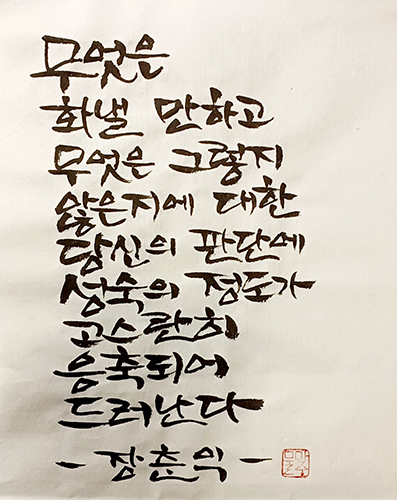 무엇은
화낼 만하고
무엇은 그렇지
않은지에 대한
당신의 판단에
성숙의 정도가
고스란히
응축되어
드러난다
- 장춘익 -